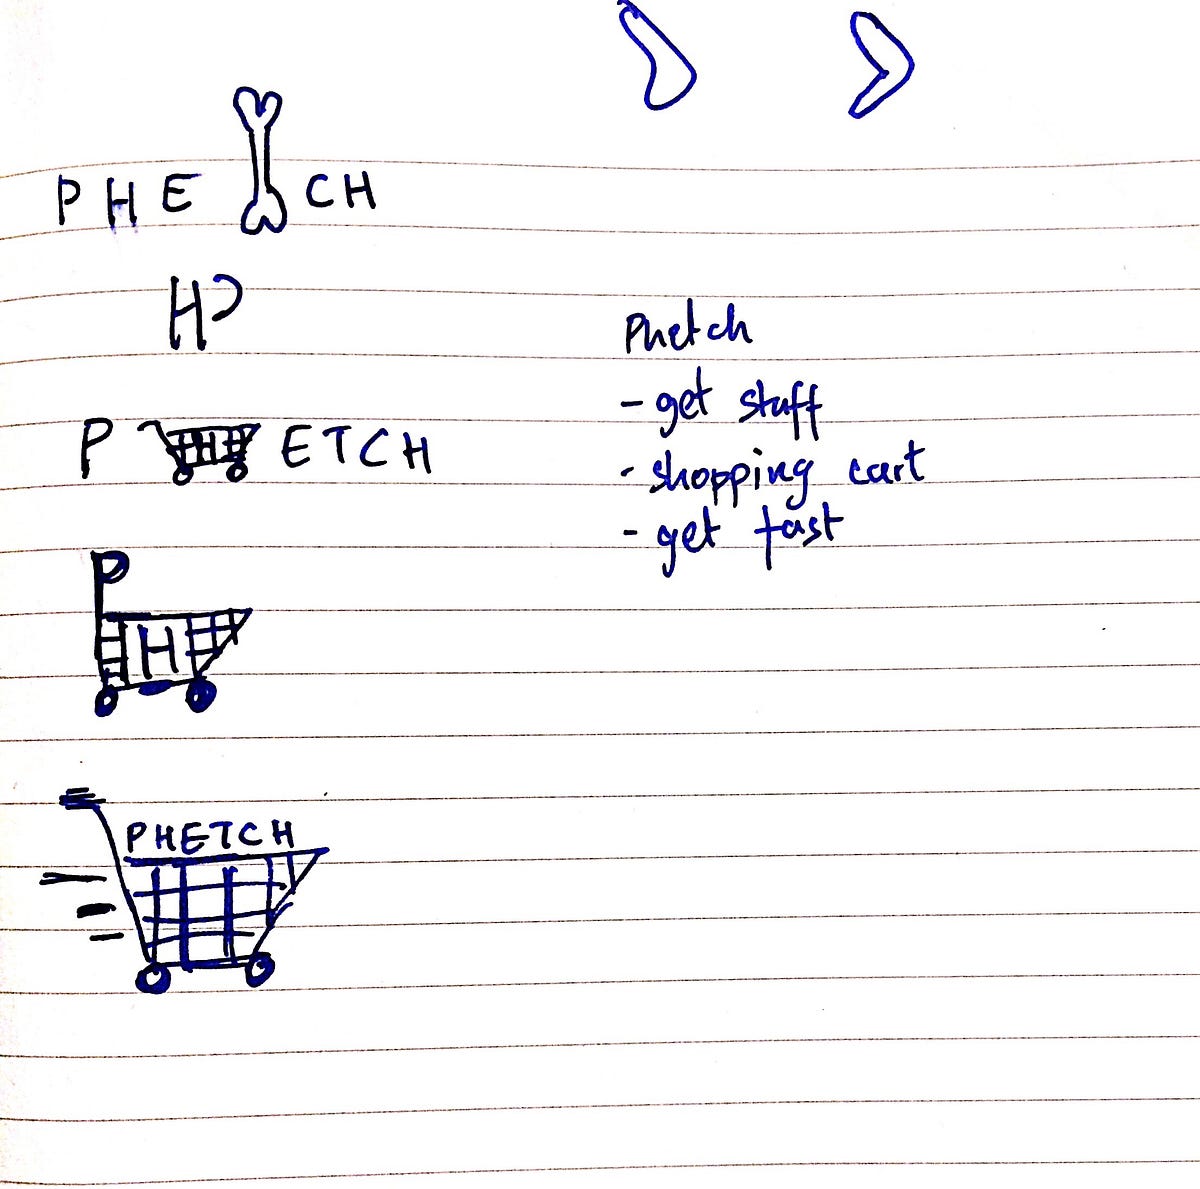 PHE CH
H
P H ETCH
P
H
PHETCH
Phetch
- get stuff
- shopping cart
- get fast